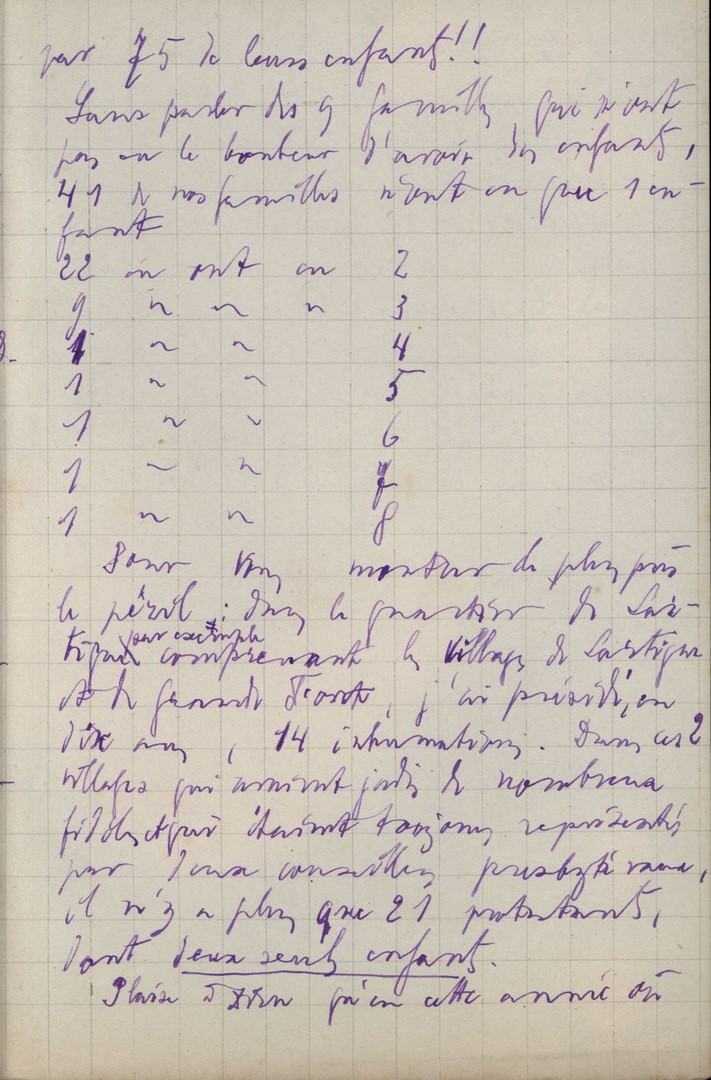 par 75 de leurs enfants!!
Sans parler des 9 familles qui n'ont
pas eu le bonheur d'avoir des enfants,
41 de nos familles n'ont eu que 1 en-
fant
22 en ont eu 2
9 " " " 3
1 " " 4
1 " " 5
1 " " 6
1 " " 7
1 " " 8
Pour vous montrer de plus près
le péril : dans le quartier de Las-
tigue par exemple comprenant les villages de Lastigue
et de Grande Font, j'ai présidé, en
dix ans, 14 inhumations. Dans ces 2
villages qui avaient jadis de nombreux
fidèles et qui étaient toujours représentés
par deux conseillers presbytéraux,
il n'y a plus que 21 protestants,
dont deux seuls enfants.
Plaise à Dieu qu'en cette année où